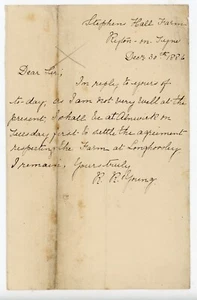 Stephen Hall Farm
Ryton-on-Tyne
Decr 30th 1886
Dear Sir,
In reply to yours of
to-day; as I am not very well at the
present I shall be at Alnwick on
Tuesday first to settle the agreement
respecting the Farm at Longhorsley
I remain, Yours truly
R. R. Young